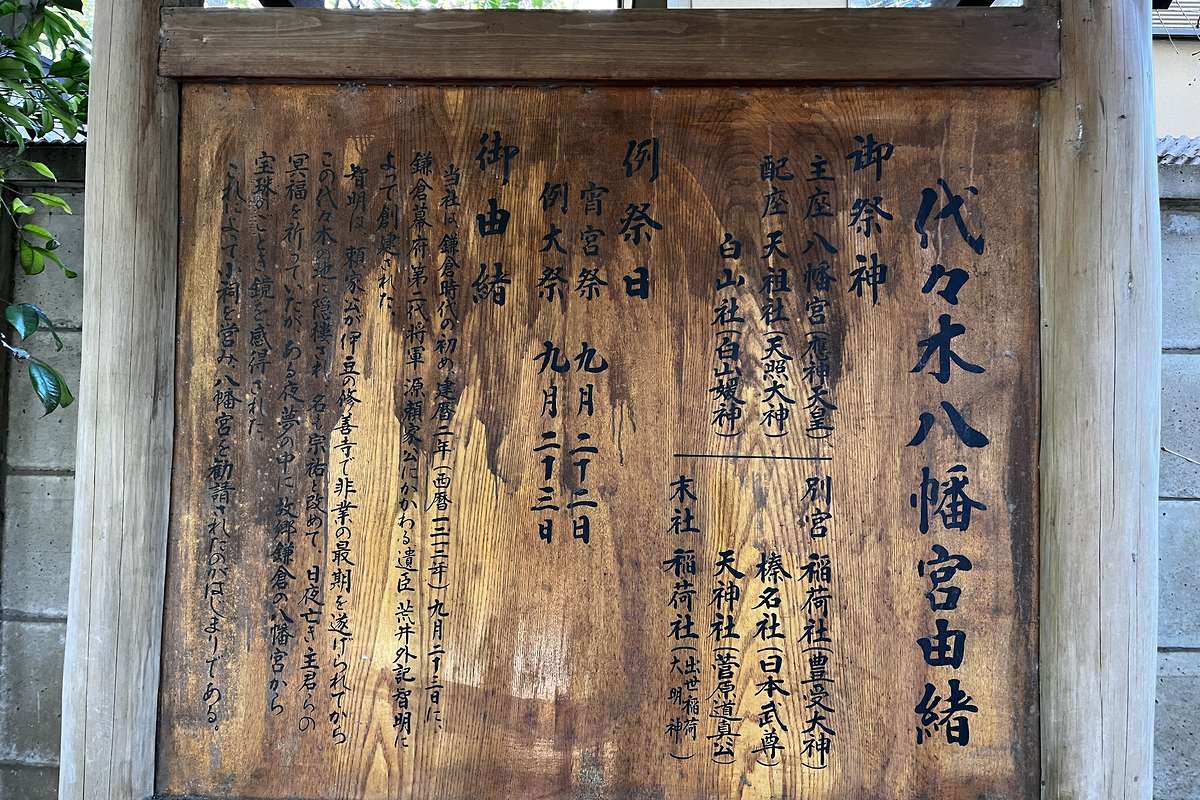 代々木八幡宮由緒
御祭神
主座 八幡宮(應神天皇)
配座 天祖社(天照大神)
白山社(白山媛神)
別宮 稲荷社(豊受大神)
榛名社(日本武尊)
天神社(菅原道真公)
末社 稲荷社(出世稲荷大明神)
例祭日
宵宮祭 九月二十二日
例大祭 九月二十三日
御由緒
当社は鎌倉時代の初め建暦二年(西暦一二一二年)九月二十三日に、
鎌倉幕府第二代将軍源頼家公にかかわる遺臣 荒井外記智明に
よって創建された。
智明は、頼家公が伊豆の修善寺で非業の最期を遂げられてから
この代々木の地に隠棲され、名も宗祐と改めて、日夜亡き主君らの
冥福を祈っていたが、ある夜夢の中に故郷鎌倉の八幡宮から
宝珠のごとき鏡を感得された。
これによって小祠を営み八幡宮を勧請されたのがはじまりである。